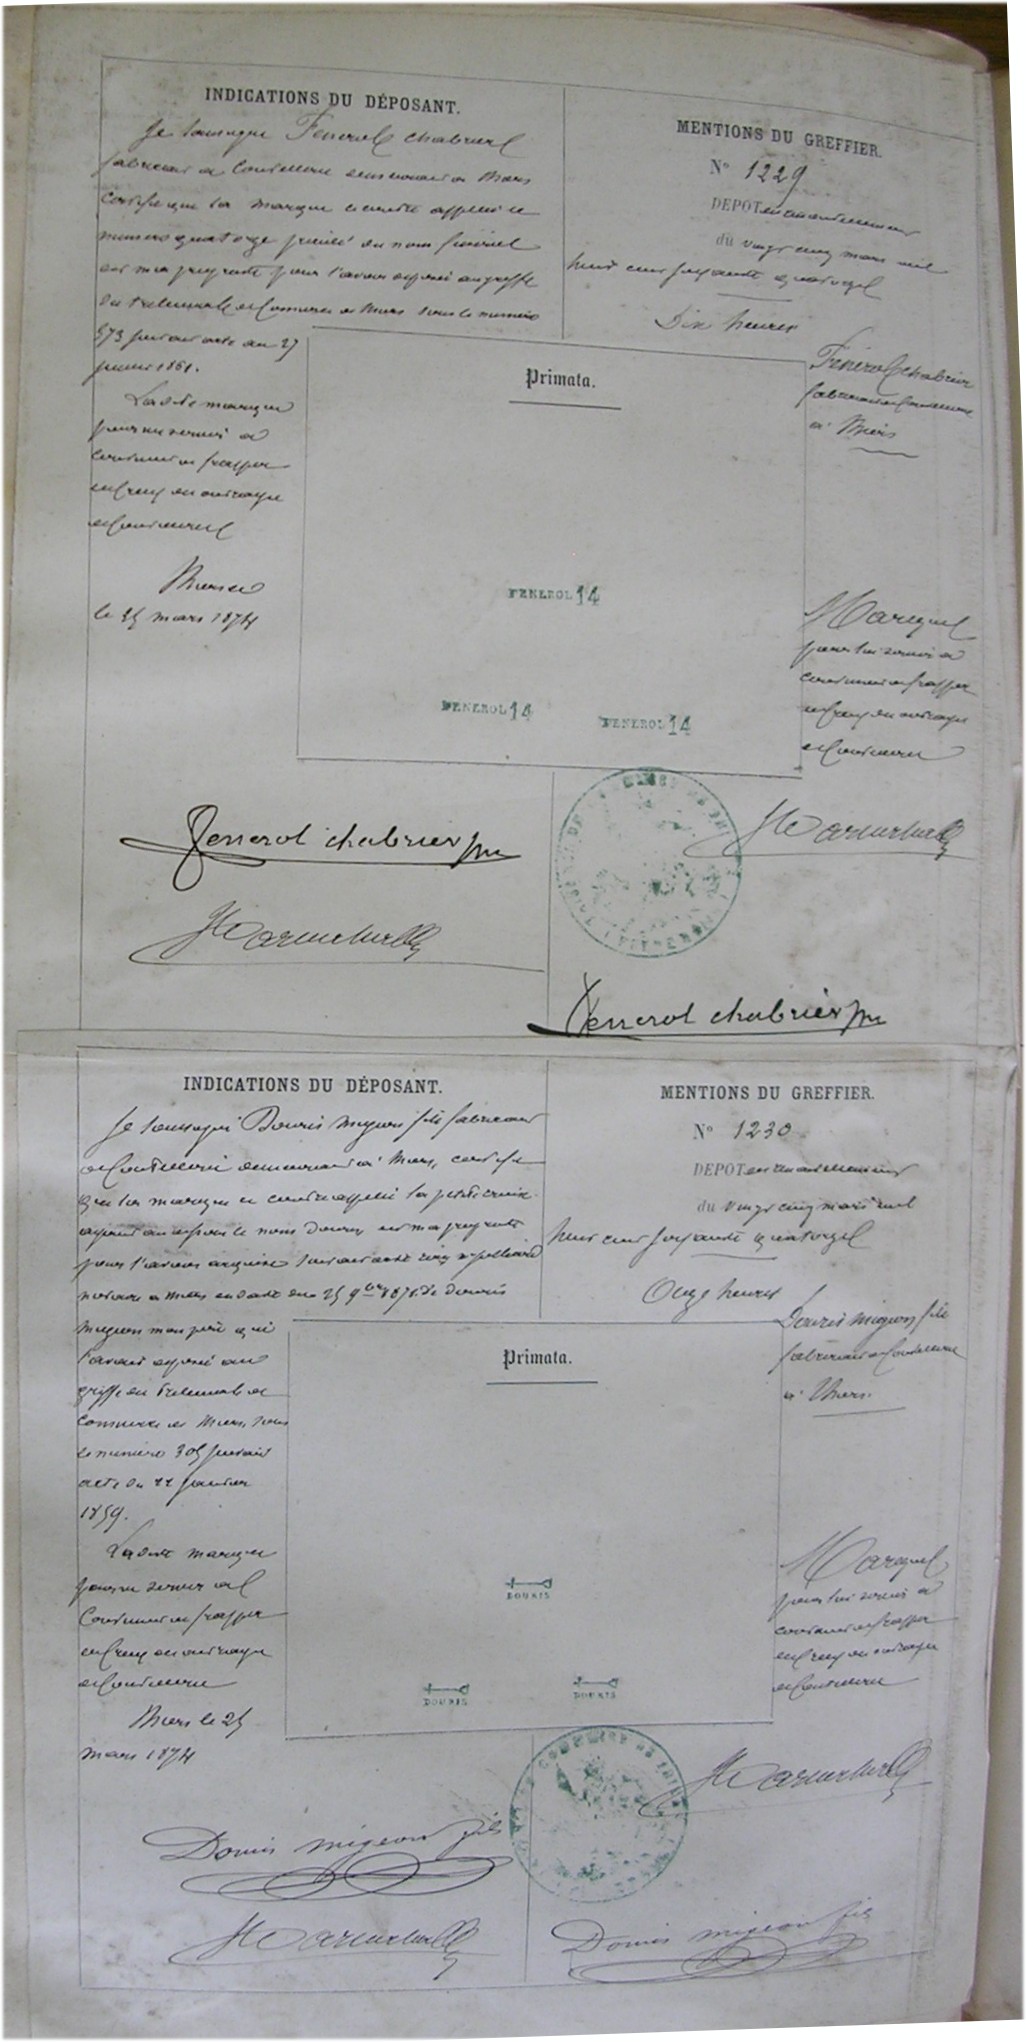 INDICATIONS DU DÉPOSANT.
Je soussigné Fenerol Chabrier
fabricant de Coutellerie demeurant à Thiers
Certifie que la marque ci contre appelée le
numero quatorze précédé du nom fénérol
est ma propriété pour l'avoir déposé au greffe
du tribunal de Commerce de Thiers sous le numéro
573 suivant acte du 27
janvier 1861.
La dite marque
pour me servir à
continuer de frapper
en Creux des ouvrages
de Coutellerie
Thiers
le 25 mars 1874
Fenerol chabrier
MENTIONS DU GREFFIER.
N° 1229
DEPOT en renouvellement
du vingt cinq mars mil
huit cent soixante quatorze
Dix heures
Primata.
Fénérol Chabrier
fabricant de Coutellerie
à Thiers
FENEROL 14
FENEROL 14
FENEROL 14
Marque
pour lui servir à
continuer de frapper
en Creux des ouvrages
de Coutellerie
Fenerol chabrier
INDICATIONS DU DÉPOSANT.
Je soussigné Douris Migeon fils fabricant
de Coutellerie demeurant à Thiers, certifie
que la marque ci contre appelée la petite croix
ayant au dessous le nom Douris est ma propriété
pour l'avoir acquise suivant acte reçu
notaire à Thiers en date du 25 9bre 1871 de Douris
Migeon mon père qui
l'avait déposé au
greffe du Tribunal de
Commerce de Thiers sous
le numéro 305 suivant
acte du 22 janvier
1859.
La dite marque
pour me servir à
Continuer de frapper
en Creux des ouvrages
de Coutellerie
Thiers le 25
mars 1874
Douris migeon fils
MENTIONS DU GREFFIER.
N° 1230
DEPOT en renouvellement
du vingt cinq mars mil
huit cent soixante quatorze
Onze heures
Primata.
Douris Migeon fils
fabricant de Coutellerie
à Thiers.
DOURIS
DOURIS
DOURIS
Marque
pour lui servir à
continuer de frapper
en Creux des ouvrages
de Coutellerie
Douris migeon fils